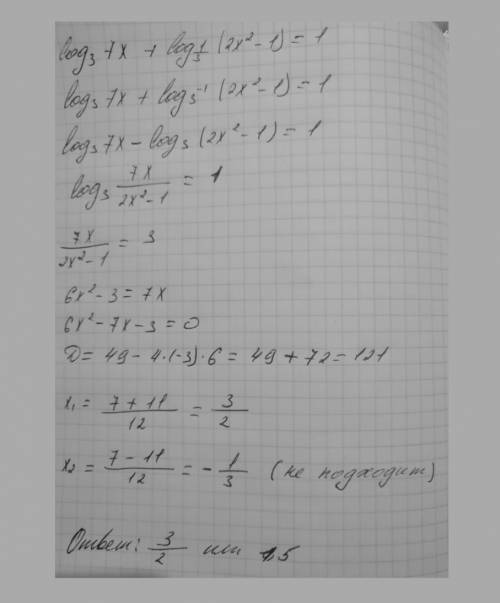 log₃ 7x + log_{1/3} (2x² - 1) = 1
log₃ 7x + log₃⁻¹ (2x² - 1) = 1
log₃ 7x - log₃ (2x² - 1) = 1
log₃ 7x/(2x² - 1) = 1
7x/(2x² - 1) = 3
6x² - 3 = 7x
6x² - 7x - 3 = 0
D = 49 - 4·(-3)·6 = 49 + 72 = 121
x₁ = (7 + 11)/12 = 3/2
x₂ = (7 - 11)/12 = - 1/3 (не подходит)
Ответ: 3/2 или 1,5